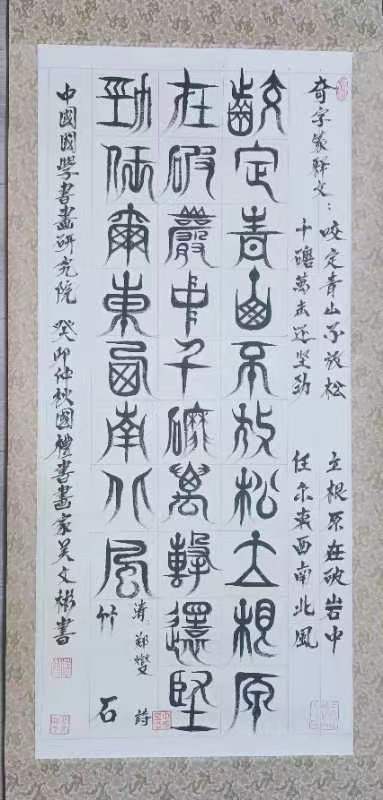 奇字篆释文：
咬定青山不放松 立根原在破岩中
千磨萬击还坚劲 任尔東西南北風
齩定青山不放松立根原
在破巖中千磨萬擊還堅
勁任爾東西南北風
清郑燮诗
竹石
中國國學書畫研究院 癸卯仲秋國禮書畫家吴文彬書